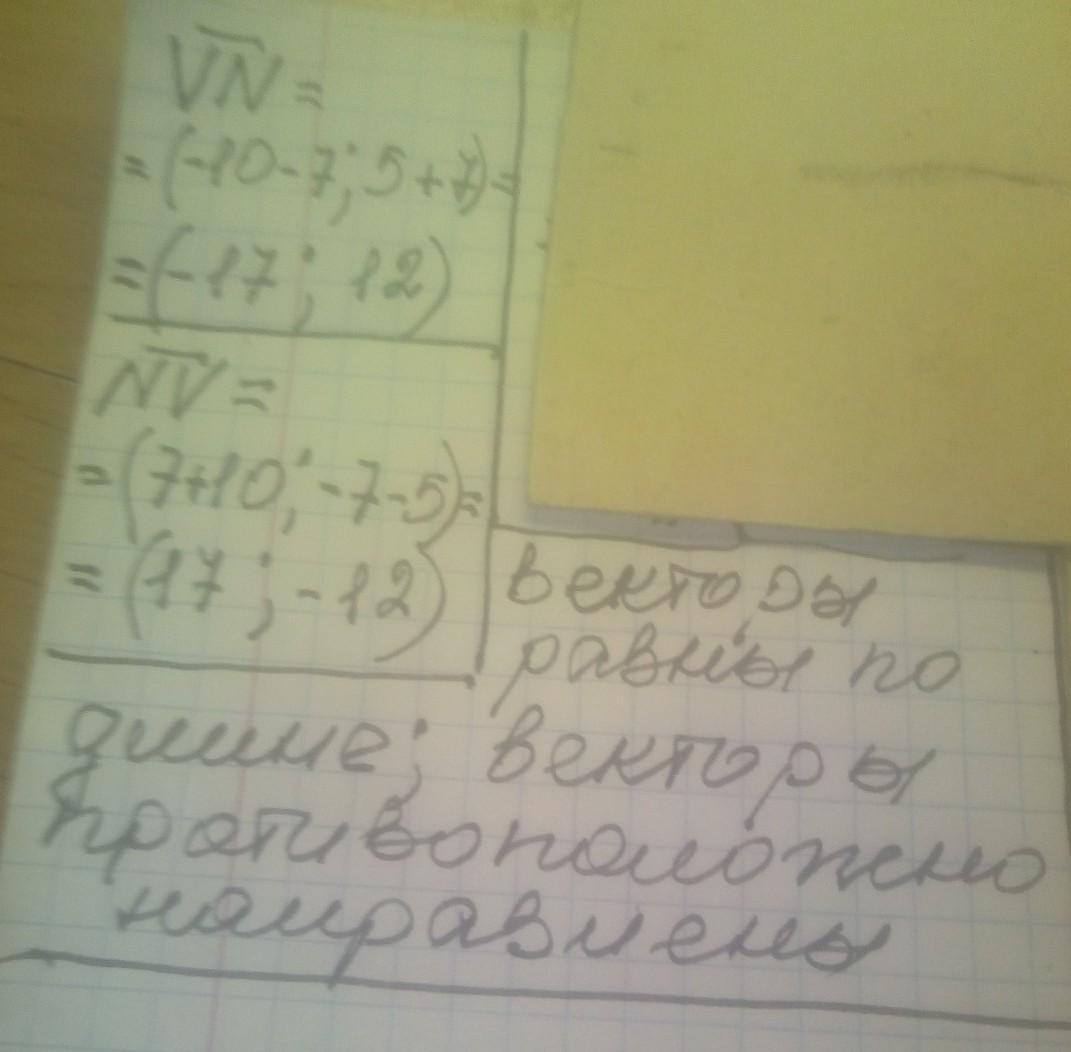 VN =
= (-10-7; 5+7) =
= (-17; 12)
NV =
= (7+10; -7-5) =
= (17; -12)
векторы
равны по
длине; векторы
противоположно
направлены